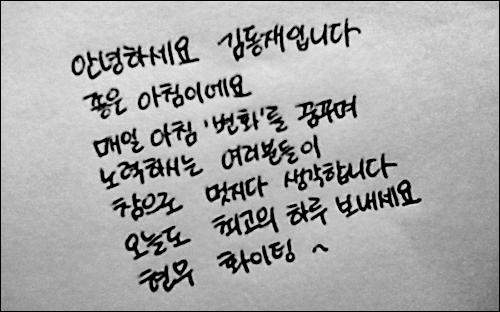 안녕하세요 김동재입니다
좋은 아침이에요
매일 아침 '변화'를 꿈꾸며
노력하시는 여러분들이
참으로 멋지다 생각합니다
오늘도 최고의 하루 보내세요
현우 화이팅 ~